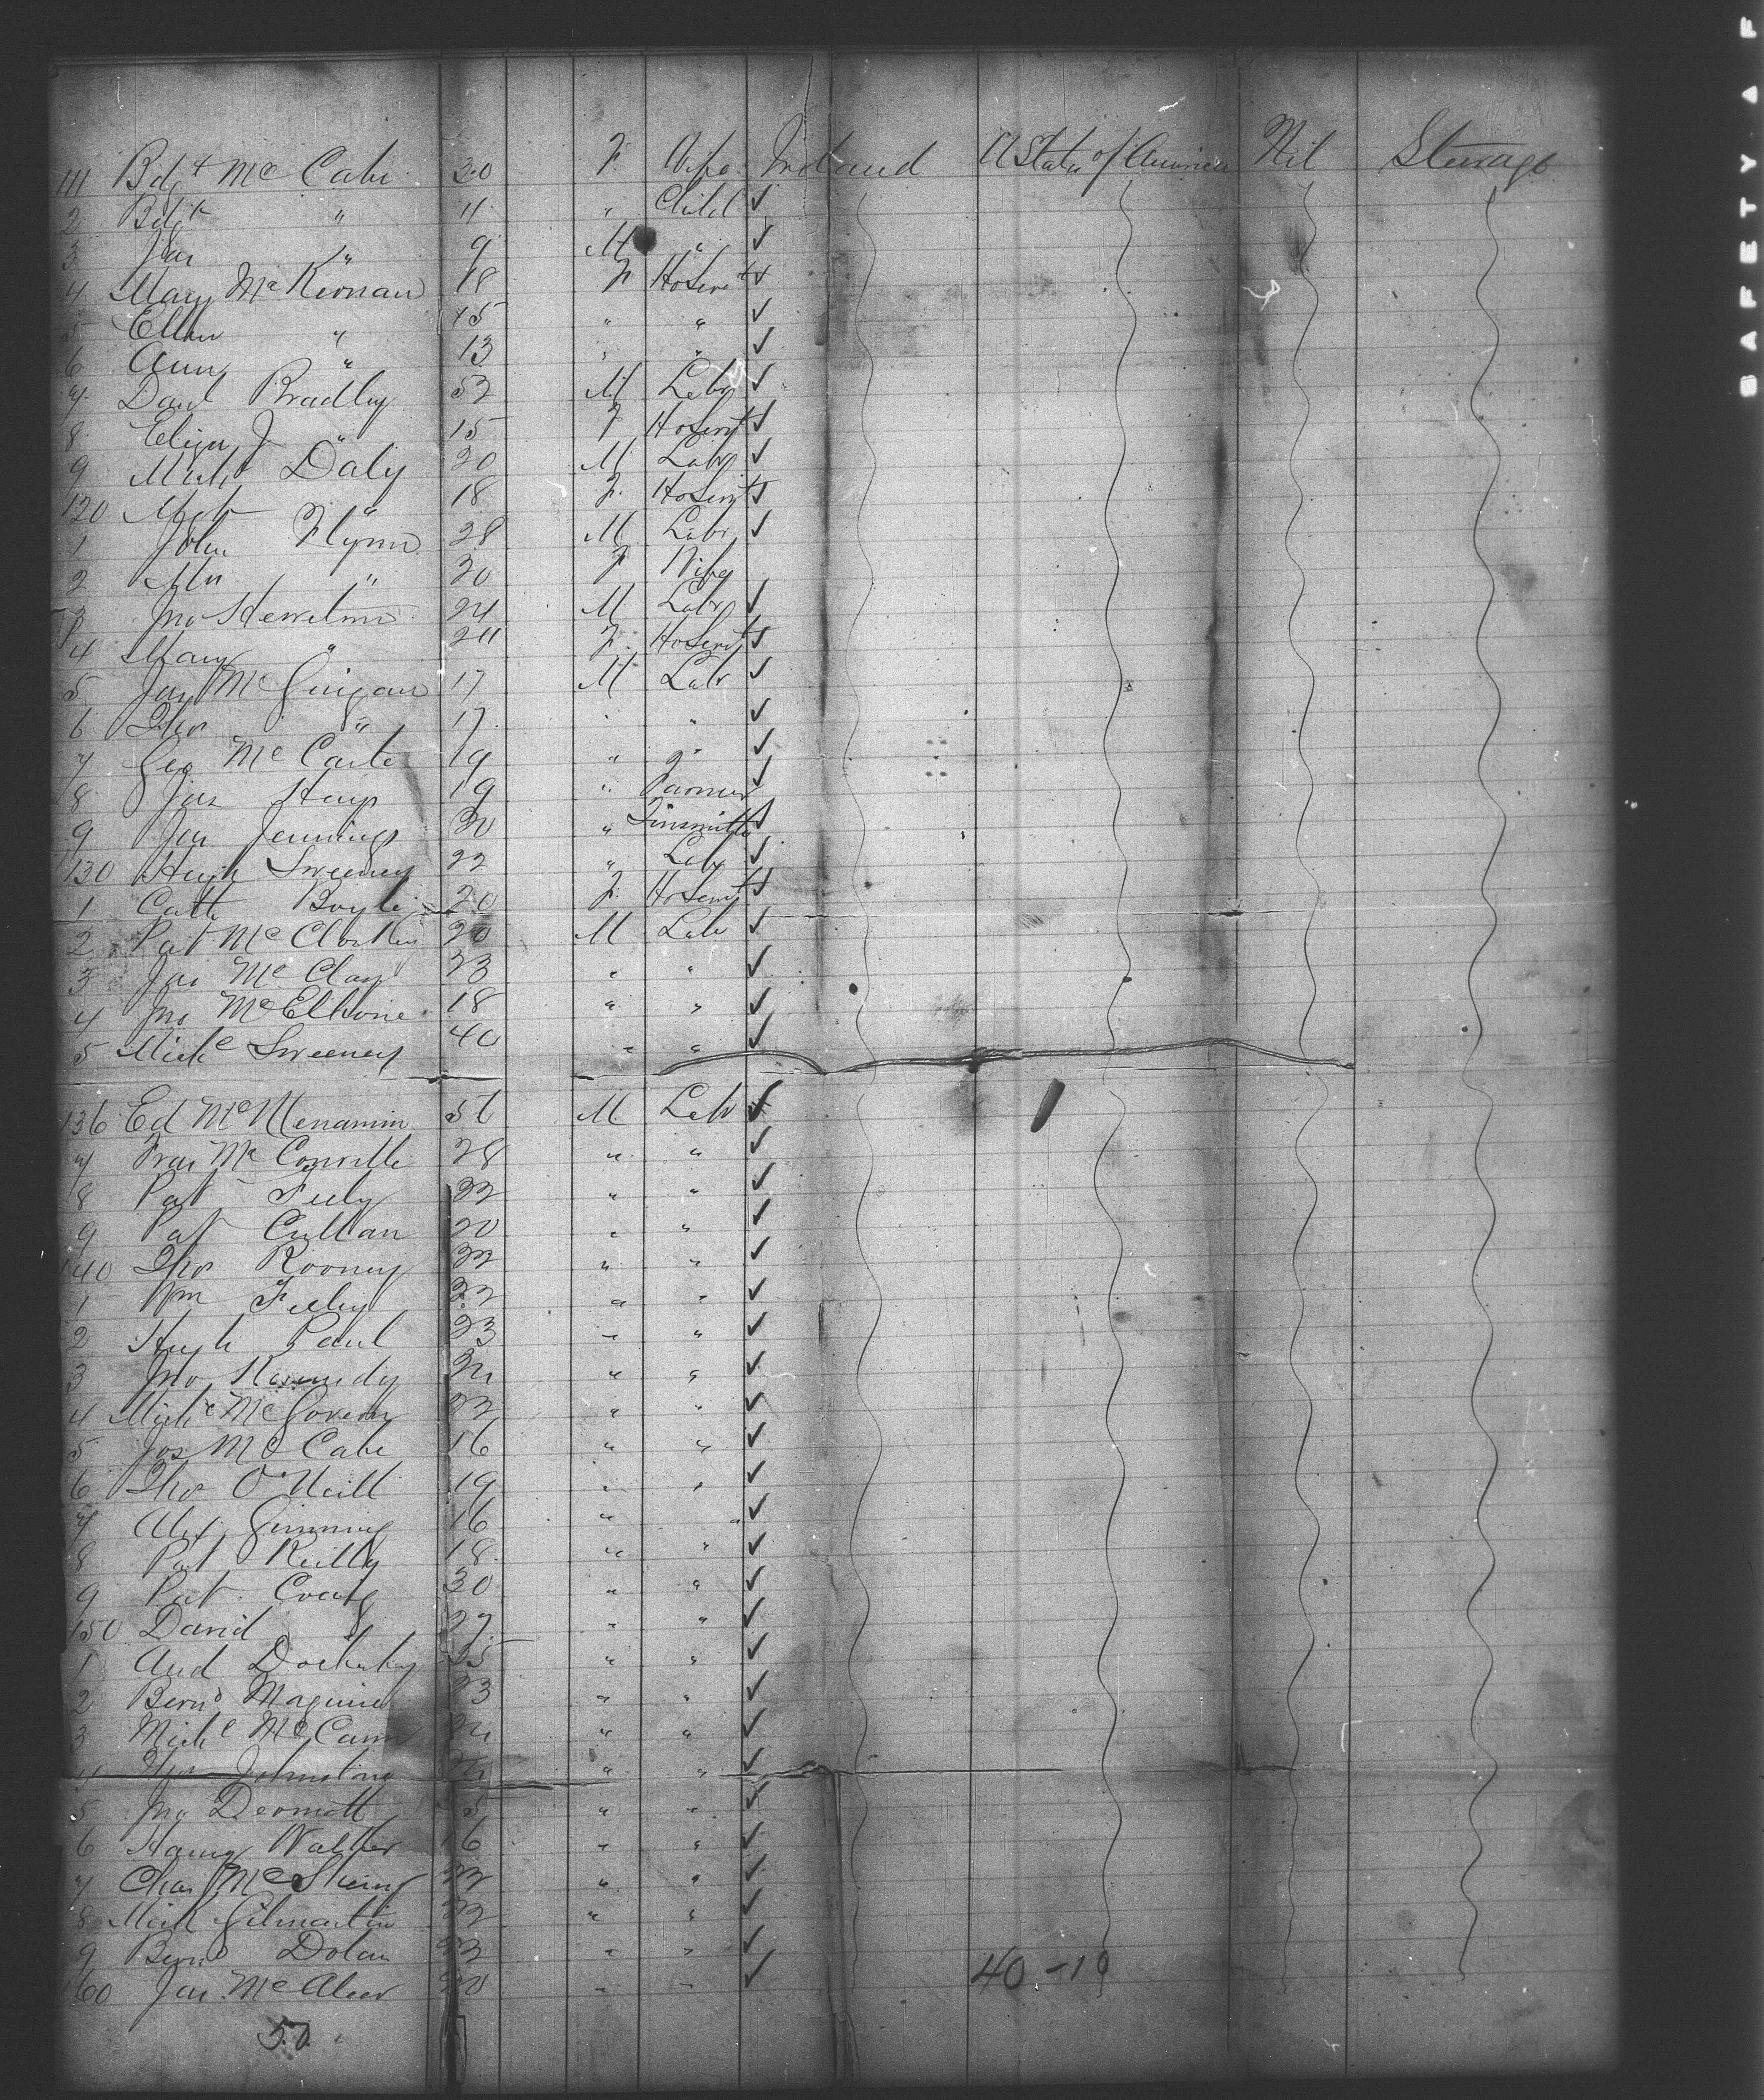 111 Bdgt McCabe 30 F. Wife Ireland U States of America Nil Steerage
2 Bdgt " 11 " Child ✓
3 Jas " 9 M " ✓
4 Mary McKiernan 18 F HoServt ✓
5 Ellen " 15 " " ✓
6 Ann " 13 " " ✓
7 Danl Bradley 52 M Labr ✓
8 Eliza J " 15 F HoServt ✓
9 Michl Daly 20 M Labr ✓
120 " 18 F. HoServt ✓
1 John Flynn 28 M Labr ✓
2 " 30 F Wife
3 Jno 24 M Labr ✓
4 Mary " 24 F. HoServt ✓
5 Jas McGuigan 17 M Labr ✓
6 Thos " 17 " " ✓
7 Geo 19 " " ✓
8 Jas Hays 19 " Farmer ✓
9 Jas Jennings 30 " Tinsmith ✓
130 Hugh Sweeney 22 " Labr ✓
1 Cath Boyle 20 F. HoServt ✓
2 Pat McCloskey 20 M Labr ✓
3 Jas 23 " " ✓
4 Jno McElhone 18 " " ✓
5 Michl Sweeney 40 " " ✓
136 Ed McMenamin 56 M Labr ✓
7 Fras McConville 28 " " ✓
8 Pat Feely 22 " " ✓
9 Pat Cullan 20 " " ✓
140 Thos Rooney 32 " " ✓
1 Wm Feeley 22 " " ✓
2 Hugh Paul 23 " " ✓
3 Jno Kennedy " " ✓
4 Michl McGovern 22 " " ✓
5 Jos McCabe 16 " " ✓
6 Thos O'Neill 19 " " ✓
7 Alex 16 " " ✓
8 Pat Reilly 18 " " ✓
9 Pat Craig 30 " " ✓
150 David " 27 " " ✓
1 And " " ✓
2 Bernd Maguire 23 " " ✓
3 Michl McCann " " ✓
4 Thos Johnstone " " ✓
5 Jno Dermott " " ✓
6 Walker " " ✓
7 Chas " " ✓
8 Mich Gilmartin 22 " " ✓
9 Bernd Dolan " " ✓
160 Jas McAleer 20 " " ✓
50
40 - 10
SAFETY F